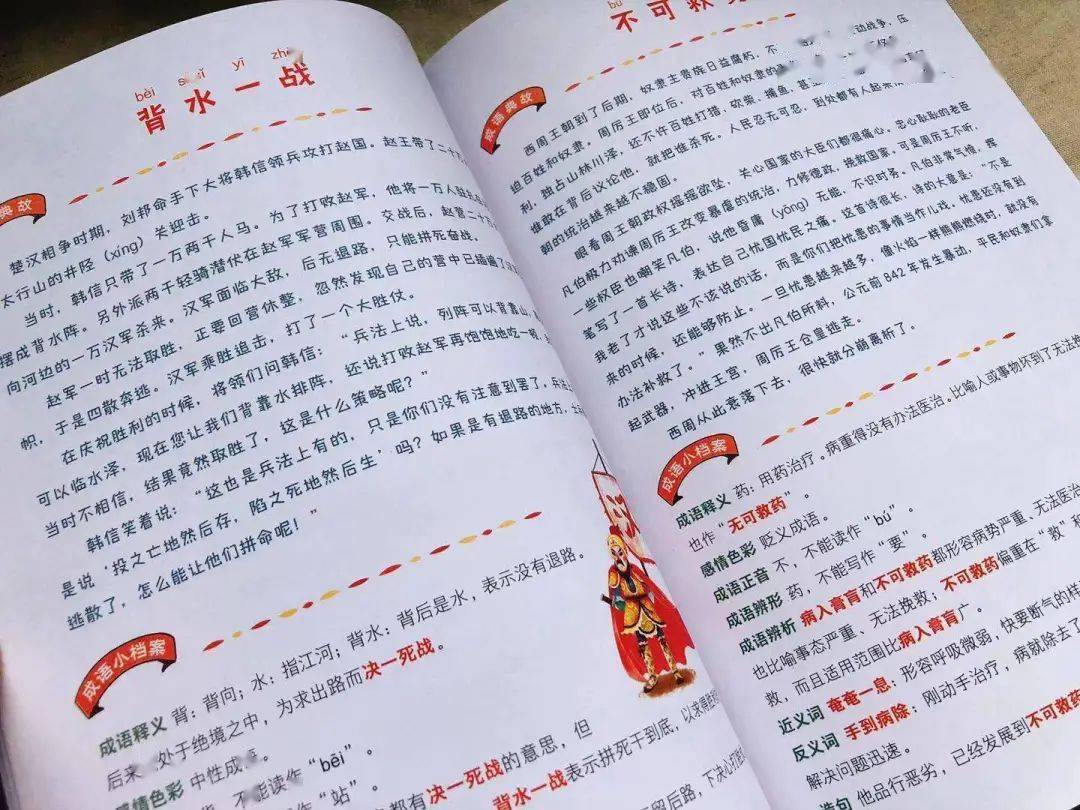 bèi yī
背水一战
典故
楚汉相争时期,刘邦命手下大将韩信领兵攻打赵国。赵王带了二十
太行山的井陉(xíng)关迎击。
当时,韩信只带了一万两千人马。为了打败赵军,他将一万人驻
摆成背水阵。另外派两千轻骑潜伏在赵军军营周围。交战后,赵营二十
向河边的一万汉军杀来。汉军面临大敌,后无退路,只能拼死奋战。
赵军一时无法取胜,正要回营休整,忽然发现自己的营中已插
帜,于是四散奔逃。汉军乘胜追击,打了一个大胜仗。
在庆祝胜利的时候,将领们问韩信:“兵法上说,列阵可以背靠山,
可以临水泽,现在您让我们背靠水排阵,还说打败赵军再饱饱地吃一
当时不相信,结果竟然取胜了,这是什么策略呢?”
韩信笑着说:“这也是兵法上有的,只是你们没有注意到罢了,兵法
是说‘投之亡地然后存,陷之死地然后生’吗?如果是有退路的地方,
逃散了,怎么能让他们拼命呢!”
成语小档案
成语释义 背:背向;水:指江河;背水:背后是水,表示没有退路。
后来 处于绝境之中,为求出路而决一死战。
感情色彩 中性成
不能读作“bēi”。
写作“站”。
都有决一死战的意思,但
背水一战表示拼死干到底,以求得
留后路,下决心
bù
不可救
成语典故
西周王朝到了后期,奴隶主贵族日益腐朽,不 动战争,压
迫百姓和奴隶。周厉王即位后,对百姓和奴隶的
利,独占山林川泽,还不许百姓打猎、砍柴、捕鱼,甚
谁敢在背后议论他,就把谁杀死。人民忍无可忍,到处都有人起来
朝的统治越来越不稳固。
眼看周王朝政权摇摇欲坠,关心国家的大臣们都很痛心,忠心耿耿的老臣
凡伯极力劝谏周厉王改变暴虐的统治,力修德政,挽救国家。可是周厉王不听,
一些权臣也嘲笑凡伯,说他昏庸(yōng)无能,不识时务。凡伯非常气愤,挥
笔写了一首长诗,表达自己忧国忧民之痛。这首诗很长,诗的大意是:“不是
我老了才说这些不该说的话,而是你们把忧患的事情当作儿戏,忧患还没有到
来的时候,还能够防止。一旦忧患越来越多,像火焰一样熊熊燃烧时,就没有
办法补救了。”果然不出凡伯所料,公元前842年发生暴动,平民和奴隶们拿
起武器,冲进王宫,周厉王仓皇逃走。
西周从此衰落下去,很快就分崩离析了。
成语小档案
成语释义 药:用药治疗。病重得没有办法医治。比喻人或事物坏到了无法
也作“无可救药”。
感情色彩 贬义成语。
成语正音 不,不能读作“bú”。
成语辨形 药,不能写作“要”。
成语辨析 病入膏肓和不可救药都形容病势严重、无法医治
也比喻事态严重、无法挽救;不可救药偏重在“救”
救,而且适用范围比病入膏肓广。
近义词 奄奄一息:形容呼吸微弱,快要断气的样
反义词 手到病除:刚动手治疗,病就除去了
解决问题迅速。
造句 他品行恶劣,已经发展到不可救药